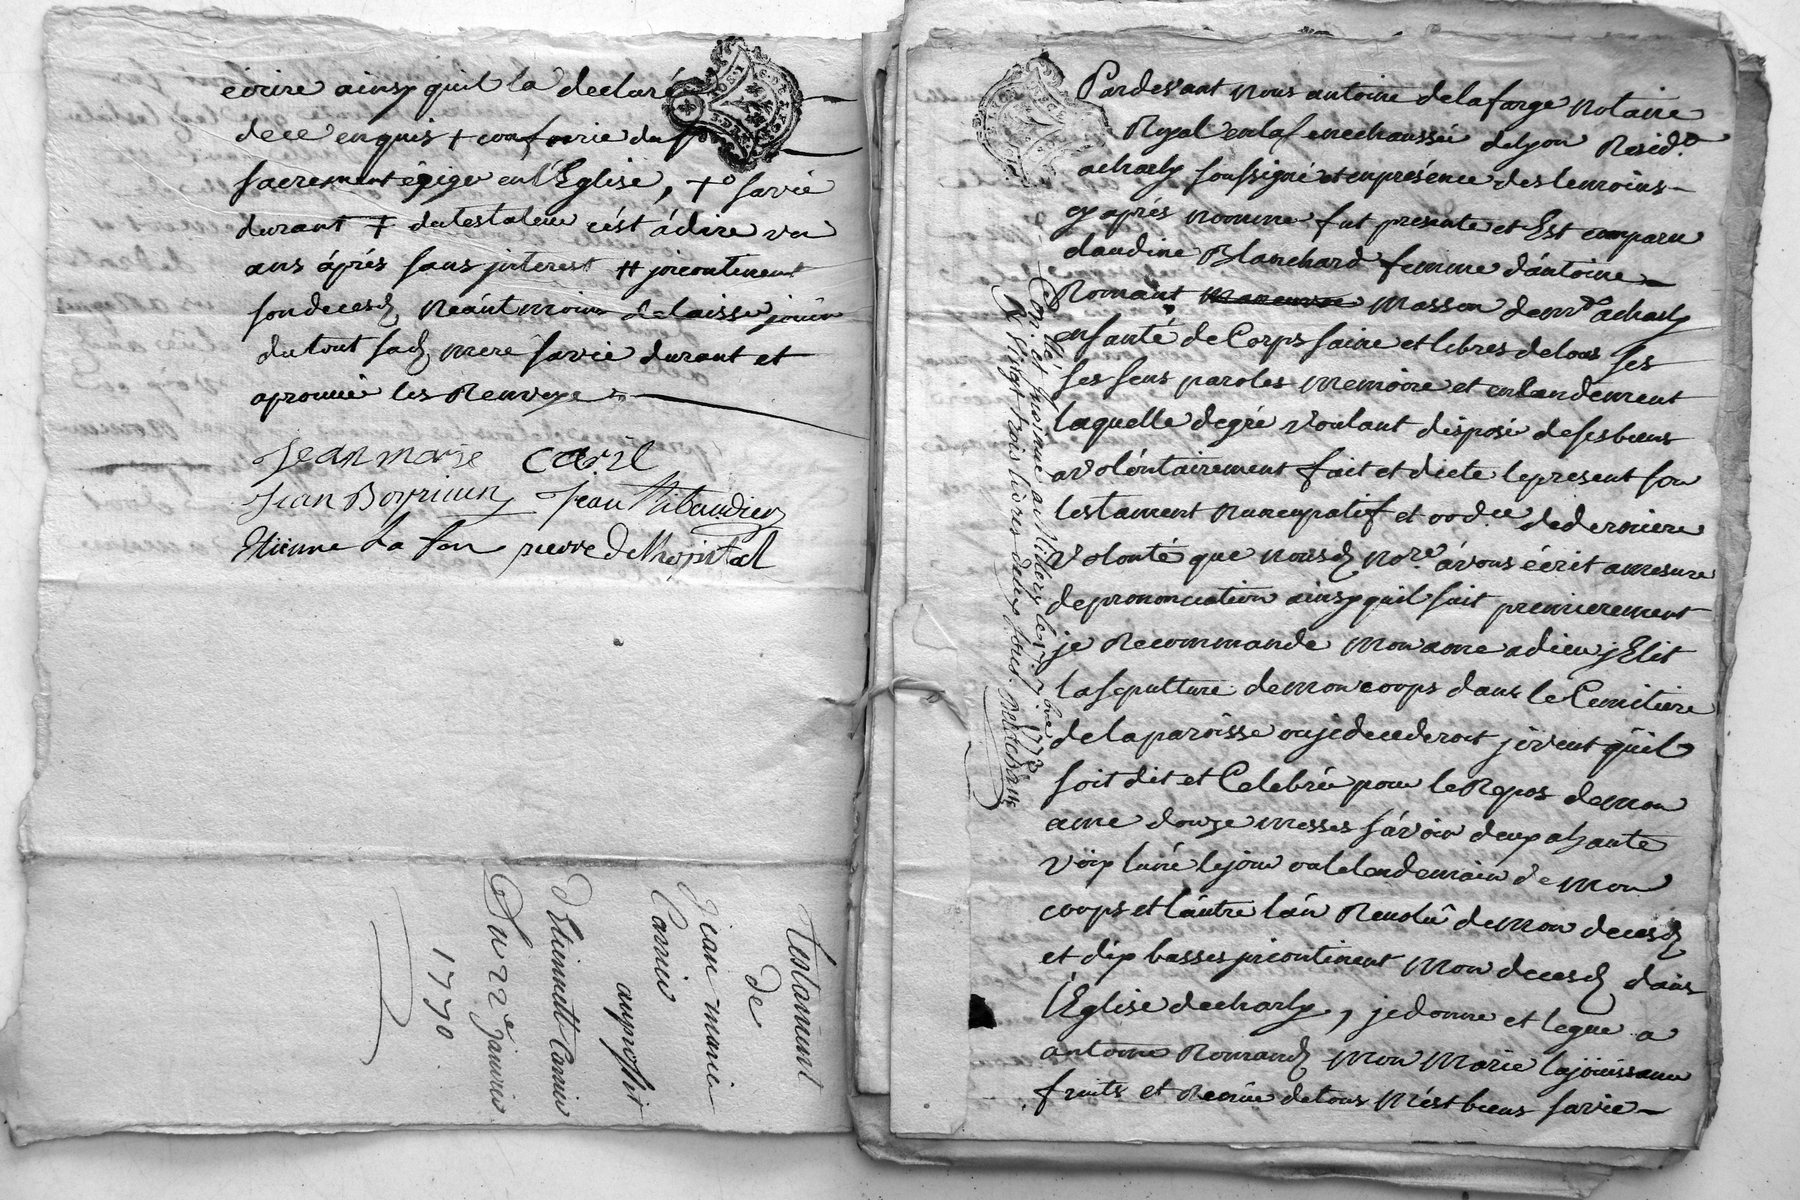 écrire ainsy quil la declaré
de ce enquis + confrerie du st
sacrement érigée en l'Eglise, +o sa vie
durant ‡ du testateur c'est á dire un
ans áprés sans jnterest # jncontinent
son decesd néantmoins delaisse jouir
du tout sad mere sa vie durant et
aprouvé les Renvoye
jean marie caril
jean Boyriuen jean thibaudier
Etienne La fon pierre De lhopital
testament
de
jean marie
Carrier
au profit
d'Etiennett Carrier
Du 22e janvier
1770
Pardevant nous antoine delafarge notaire
Royal en la senechaussée de lyon Resid.t
acharly soussigné et en présence des temoins
cy aprés nommé fut presente et Est comparu
claudine Blanchard femme d'ántoine
Romant masson dem.t acharly
en santé de Corps saine et libres de tous ses
ses sens paroles memoire et entandement
laquelle de gré voulant disposé de ses biens
a volóntairement fait et dicte le present son
testament nuncupatif et ord.ce de derniere
volonté que nousd no.re ávons écrit amesure
de prononciation ainsy quil suit premierement
je Recommande mon ame a dieu j Elit
la sepulture de mon corps dans le Cemitiere
de la paroisse ou je decederois je veut quil
soit dit et Celebrée pour le Repos de mon
ame douze messes sávoir deux a hante
voix luné le jour ou le lendemain de mon
corps et l'áutre l'án Revolu de mon decesd
et dix basses jncontinent mon decesd dans
l'Eglise de charly, je donne et legue a
antoine Romand mon Marie la jouissance
fruits et Revenue de tous mést biens sa vie
Con.lé et jnsinué au St Les 17 1773
vingt trois livres deux sous.